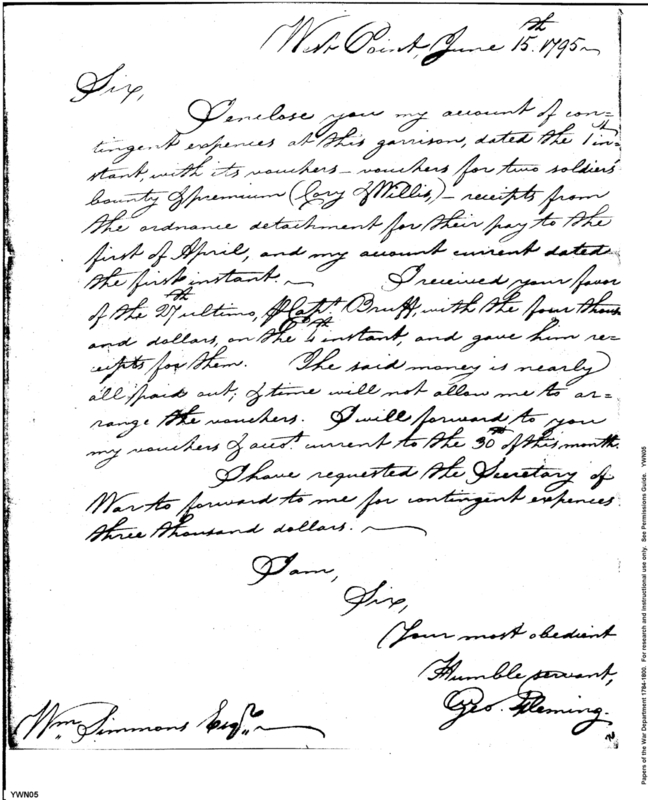 West Point, June 15th. 1795
Sir,
I enclose you my account of con=
tingent expences at this garrison, dated the 1st in=
stant, with its vouchers - vouchers for two soldiers'
bounty & premium (Cory & Willis,) - receipts from
the ordnance detachment for their pay to the
first of April, and my account current dated
the first instant. I received your favor
of the 27th ultimo, Capt. Bruff, with the four thous
and dollars, on the 4th instant, and gave him re=
ceipts for them. The said money is nearly
all paid out, & time will not allow me to ar=
range the vouchers. I will forward to you
my vouchers & acct. current to the 30th of this month.
I have requested the Secretary of
War to forward to me for contingent expences
three thousand dollars.
I am,
Sir,
Your most obedient
Humble servant,
Geo. Fleming.
Wm. Simmons Esqr.
YWN05
Papers of the War Department 1784-1800. For research and instructional use only. See Permissions Guide. YWN05